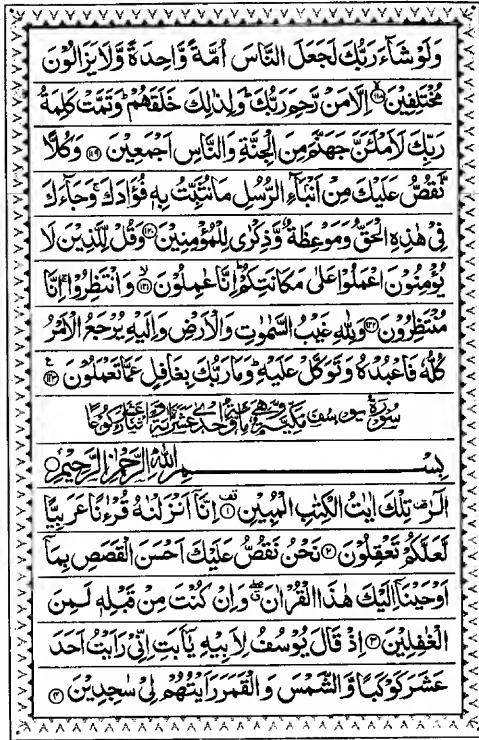 وَلَوْ شَآءَ رَبُّكَ لَجَعَلَ النَّاسَ اُمَّةً وَّاحِدَةً وَّلَا يَزَالُوْنَ
مُخْتَلِفِيْنَ ۙ﴿۱۱۸﴾ اِلَّا مَنْ رَّحِمَ رَبُّكَ ؕ وَلِذٰلِكَ خَلَقَهُمْ ؕ وَتَمَّتْ كَلِمَةُ
رَبِّكَ لَاَمْلَئَنَّ جَهَنَّمَ مِنَ الْجِنَّةِ وَالنَّاسِ اَجْمَعِيْنَ ﴿۱۱۹﴾ وَكُلًّا
نَّقُصُّ عَلَيْكَ مِنْ اَنْۢبَآءِ الرُّسُلِ مَا نُثَبِّتُ بِهٖ فُؤَادَكَ ۚ وَجَآءَكَ
فِيْ هٰذِهِ الْحَقُّ وَمَوْعِظَةٌ وَّذِكْرٰى لِلْمُؤْمِنِيْنَ ﴿۱۲۰﴾ وَقُلْ لِّلَّذِيْنَ لَا
يُؤْمِنُوْنَ اعْمَلُوْا عَلٰى مَكَانَتِكُمْ ؕ اِنَّا عٰمِلُوْنَ ۙ﴿۱۲۱﴾ وَانْتَظِرُوْا ۚ اِنَّا
مُنْتَظِرُوْنَ ﴿۱۲۲﴾ وَلِلّٰهِ غَيْبُ السَّمٰوٰتِ وَالْاَرْضِ وَاِلَيْهِ يُرْجَعُ الْاَمْرُ
كُلُّهٗ فَاعْبُدْهُ وَتَوَكَّلْ عَلَيْهِ ؕ وَمَا رَبُّكَ بِغَافِلٍ عَمَّا تَعْمَلُوْنَ ﴿۱۲۳﴾
سُوْرَةُ يُوْسُفَ مَكِّيَّةٌ وَّهِيَ مِائَةٌ وَّاِحْدٰى عَشَرَةَ اٰيَةً وَّاثْنَا عَشَرَ رُكُوْعًا
بِسْمِ اللّٰهِ الرَّحْمٰنِ الرَّحِيْمِ
الٓرٰ ۟ تِلْكَ اٰيٰتُ الْكِتٰبِ الْمُبِيْنِ ﴿۱﴾ اِنَّآ اَنْزَلْنٰهُ قُرْءٰنًا عَرَبِيًّا
لَّعَلَّكُمْ تَعْقِلُوْنَ ﴿۲﴾ نَحْنُ نَقُصُّ عَلَيْكَ اَحْسَنَ الْقَصَصِ بِمَآ
اَوْحَيْنَآ اِلَيْكَ هٰذَا الْقُرْاٰنَ ۖ وَاِنْ كُنْتَ مِنْ قَبْلِهٖ لَمِنَ
الْغٰفِلِيْنَ ﴿۳﴾ اِذْ قَالَ يُوْسُفُ لِاَبِيْهِ يٰٓاَبَتِ اِنِّيْ رَاَيْتُ اَحَدَ
عَشَرَ كَوْكَبًا وَّالشَّمْسَ وَالْقَمَرَ رَاَيْتُهُمْ لِيْ سٰجِدِيْنَ ﴿۴﴾